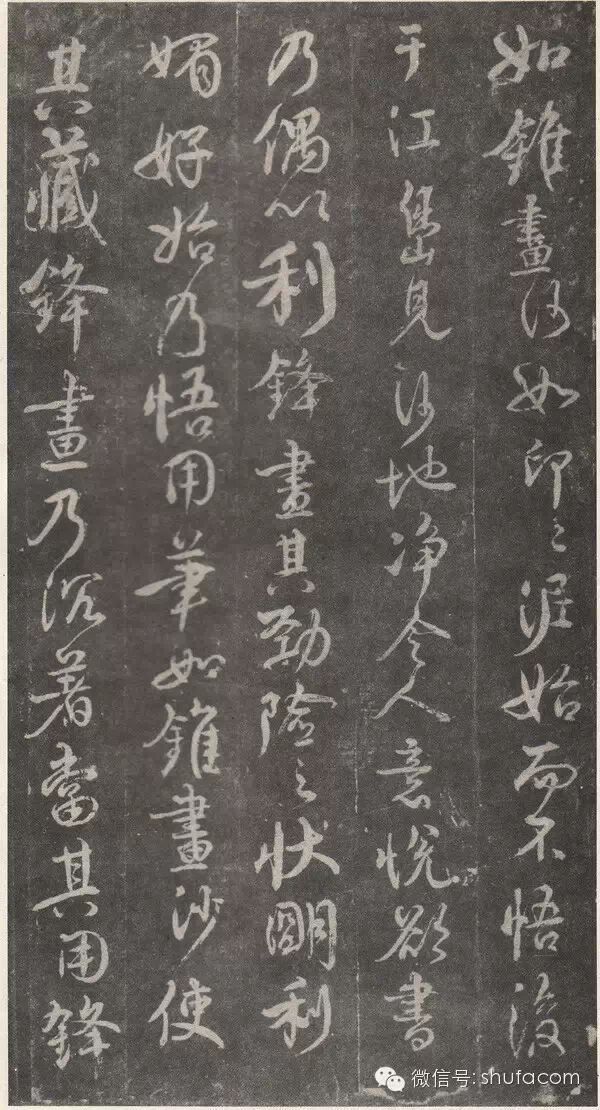 如錐畫沙如印印泥始而不悟後
于江島見沙地净令人意悅欲書
乃偶以利鋒畫其勁險之狀明利
媚好始乃悟用筆如錐畫沙使
其藏鋒畫乃沉著當其用鋒
微信号: shufacom